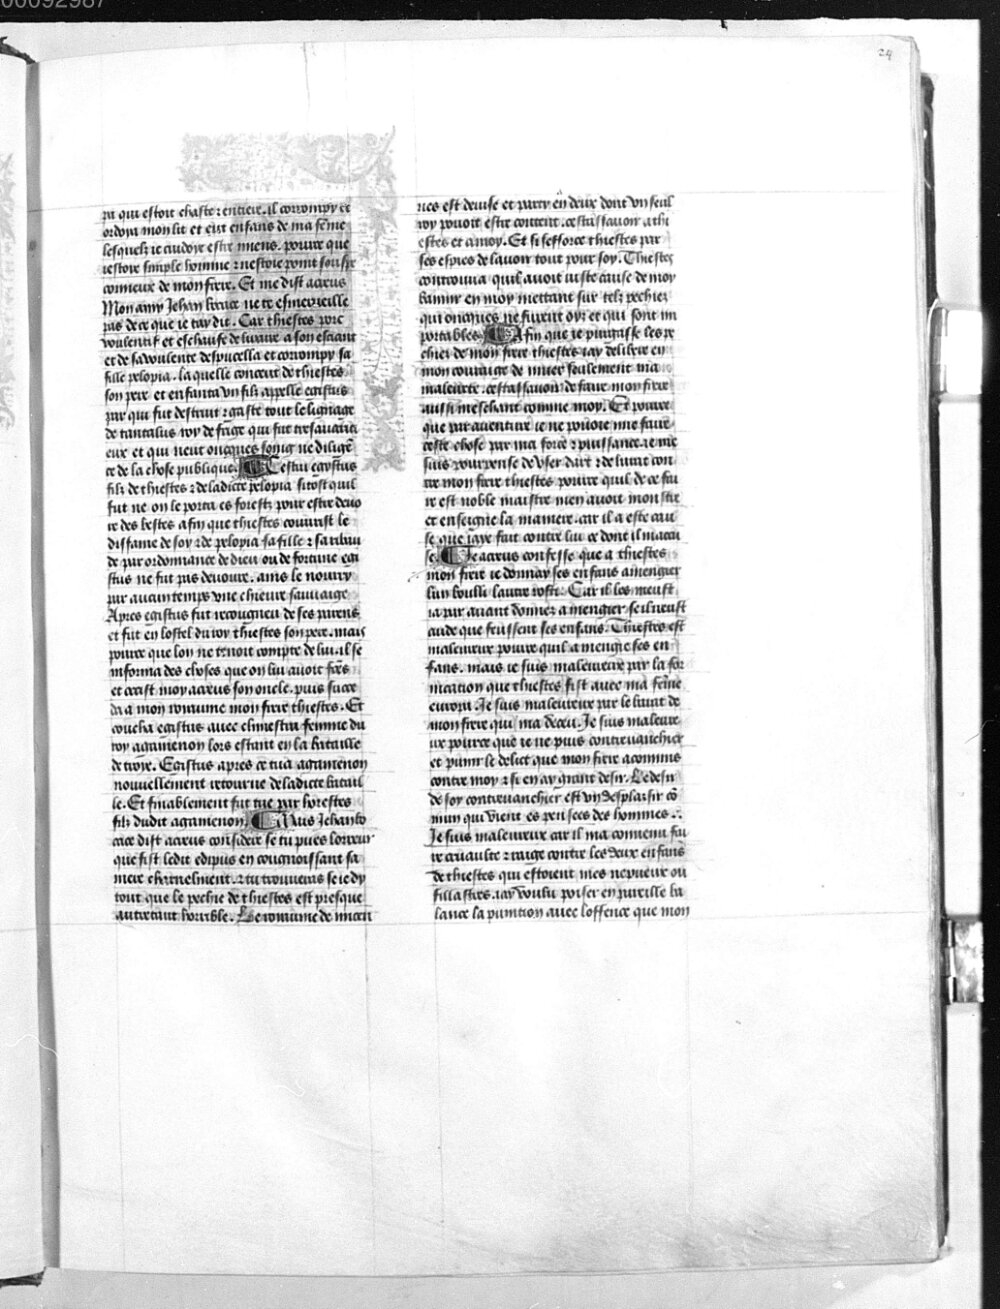 00092987
24
ra qui estoit chaste ⁊ entiere. il corrompy et
ordoya mon lit et eust enfans de ma fême
lesquelz ie cuidoye estre miens. pource que
iestoie simple homme ⁊ nestoie point soupe
connieux de mon frere. Et me dist acreus
Mon amy Jehan bocace ne te esmerveille
pas de ce que ie tay dit. Car thiestes porc
voulentif et eschaufe de luxure a son escient
et de sa voulente despucella et corrompy sa
fille pelopia. la quelle conceut de thiestes
son pere et enfanta vn filz appelle egistus
par qui fut destruit ⁊ gaste tout le lignage
de tantalus roy de frige qui fut tresauarici
eux et qui neut oncques soing ne diligê
ce de la chose publique. Cestui egystus
filz de thiestes ⁊ de ladicte pelopia sitost quil
fut ne on le porta es forestz pour estre deuo
re des bestes afin que thiestes couurist le
diffame de soy ⁊ de pelopia sa fille ⁊ sa ribau
de par ordonnance de dieu ou de fortune egi
stus ne fut pas deuoure. ains le nourry
par aucun temps vne chieure sauuaige
Apres egistus fut recougneu de ses parens
et fut en lostel du roy thiestes son pere. mais
pource que lon ne tenoit compte de lui. il se
informa des choses que on lui auoit fctes
et occist moy acreus son oncle. puis succe
da a mon royaume mon frere thiestes. Et
coucha egistus auec climestra femme du
roy agamenon lors estant en la bataille
de troye. Egistus apres ce tua agamenon
nouuellement retourne de ladicte batail
le. Et finablement fut tue par horestes
filz dudit agamenon. Mais Jehan bo
cace dist acreus considere se tu pues lorreur
que fist ledit edipus en congnoissant sa
mere charnelment. ⁊ tu trouueras se ie dy
tout que le pechie de thiestes est presque
autretant horrible. Le royaume de micen
nes est deuise et party en deux dont vn seul
roy pouoit estre content. cestassauoir a thi
estes et a moy. Et si sefforce thiestes par
ses espies de lauoir tout pour soy. Thiestes
controuua quil auoit iuste cause de moy
bannir en moy mettant sur telz pechiez
qui oncques ne furent oyz et qui sont im
portables. Afin que ie purgasse les pe
chiez de mon frere thiestes iay delibere en
mon couraige de muer seulement ma
maleurte. cestassauoir de faire mon frere
aussi meschant comme moy. Et pource
que par auenture ie ne pouoie mie faire
ceste chose par ma force ⁊ puissance. ie me
suis pourpense de vser dart ⁊ de barat con
tre mon frere thiestes pource quil de ce fai
re est noble maistre men auoit monstre
et enseigne la maniere. car il a este cau
se que iaye fait contre lui ce dont il macu
se. Je acreus confesse que a thiestes
mon frere ie donnay ses enfans a mengier
lun boulli lautre rosti. Car il les meust
ia par auant donnez a mengier se il neust
cuide que feussent ses enfans. Thiestes est
maleureux pource quil a mengie ses en
fans. mais ie suis maleureux par la for
nication que thiestes fist auec ma fême
europa. Je suis maleureux par le barat de
mon frere qui ma deceu. Je suis maleure
ux pource que ie ne puis contreuanchier
et punir le delict que mon frere a commis
contre moy ⁊ si en ay grant desir. Le desir
de soy contreuanchier est vn desplaisir cô
mun qui vient es pensees des hommes.
Je suis maleureux car il ma conuenu fai
re cruaulte ⁊ raige contre les deux enfans
de thiestes qui estoient mes nepueux ou
fillastres. iay voulu poiser en pareille ba
lance la punition auec loffence que mon